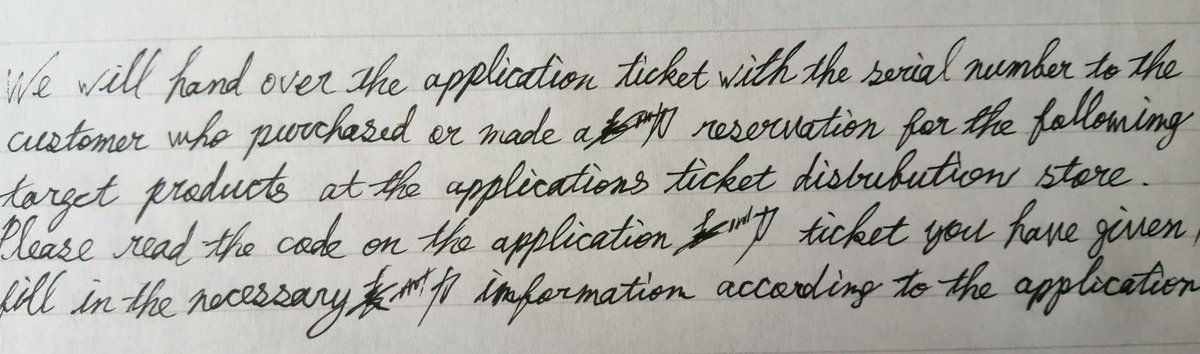 We will hand over the application ticket with the serial number to the
customer who purchased or made a reservation for the following
target products at the applications ticket distribution store.
Please read the code on the application ticket you have given,
fill in the necessary information according to the application